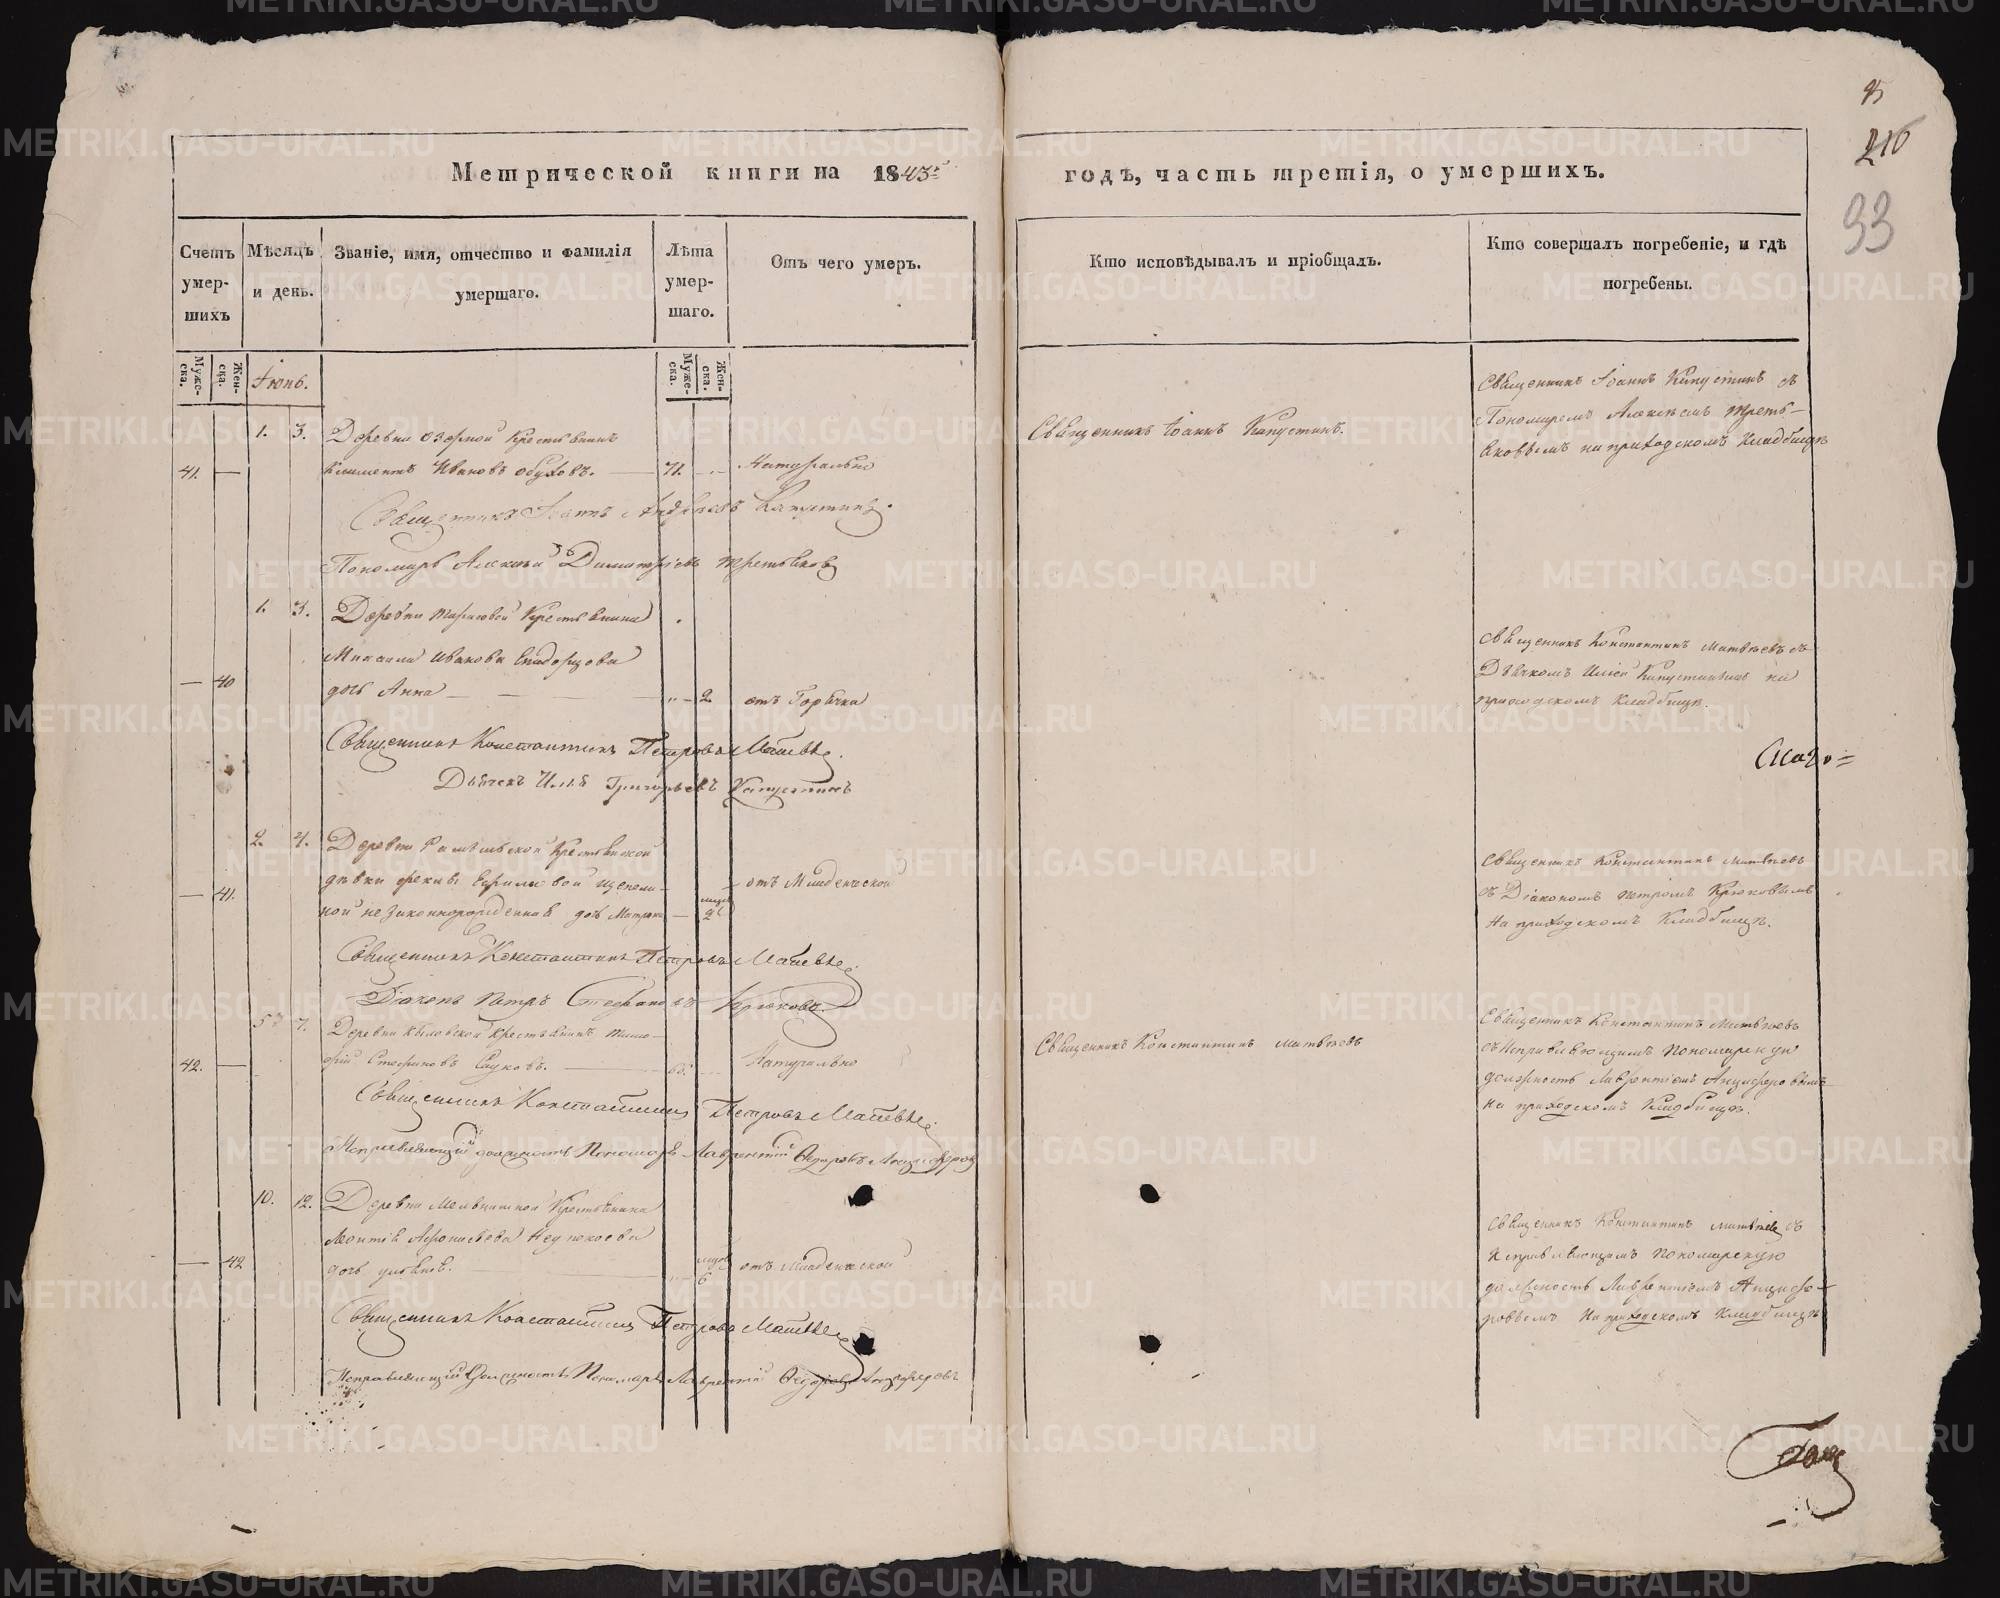 216
93
Метрической книги на 1843 годъ, часть третія, о умершихъ.
Счетъ умер- шихъ
Мѣсяцъ и день.
Званіе, имя, отчество и фамилія умершаго.
Лѣта умер- шаго.
Отъ чего умеръ.
Кто исповѣдывалъ и пріобщалъ.
Кто совершалъ погребеніе, и гдѣ погребены.
Муже- ска.
Жен- ска.
Муже- ска.
Жен- ска.
Іюнь.
1. 3. Деревни озерной Крестьянинъ
41. — Климентъ Ивановъ Обуховъ. — 71. Натурально
Священникъ Іоаннъ Капустинъ.
Священникъ Іоаннъ Капустинъ съ
Пономаремъ Алексѣемъ Треть-
яковымъ на приходскомъ кладбищѣ
Священникъ Іоаннъ Андреевъ Капустинъ.
Пономарь Алексѣй Димитріевъ Третьяковъ
1. 3. Деревни Тарасовой Крестьянина
Михаила Иванова
— 40 дочь Анна — 2 отъ Горячка
Священникъ Константинъ Матвѣевъ съ
Дьячкомъ Иліей Капустинымъ на
приходскомъ кладбищѣ.
Священникъ Константинъ Петровъ Матвѣевъ.
Дьячекъ Илья Григорьевъ Капустинъ
2. 4. Деревни Крестьянской
— 41. дѣвки
ной незаконнорожденная дочь Матрона — 2 отъ Младенческой
Священникъ Константинъ Матвѣевъ
съ Діакономъ Петромъ Крюковымъ
на приходскомъ кладбищѣ.
Священникъ Константинъ Петровъ Матвѣевъ
Діаконъ Петръ Стефановъ Крюковъ
5 7. Деревни Крестьянинъ Тимо-
42. — фій Стефановъ — 65. Натурально
Священникъ Константинъ Матвѣевъ
Священникъ Константинъ Матвѣевъ
съ Исправляющимъ пономарскую
должность Лаврентіемъ Анциферовымъ
на приходскомъ кладбищѣ.
Священникъ Константинъ Петровъ Матвѣевъ
Исправляющій должность Пономаря Лаврентій Федоровъ Анциферовъ
10. 12. Деревни Крестьянина
— 42 дочь — 6 отъ Младенческой
Священникъ Константинъ Матвѣевъ съ
Исправляющимъ пономарскую
должность Лаврентіемъ Анцифе-
ровымъ на приходскомъ кладбищѣ
Священникъ Константинъ Петровъ Матвѣевъ
Исправляющій Должность Пономаря Лаврентій Федоровъ Анциферовъ
METRIKI.GASO-URAL.RU